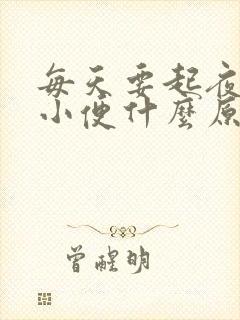 每天要起夜
小便什麼原
曾醒明